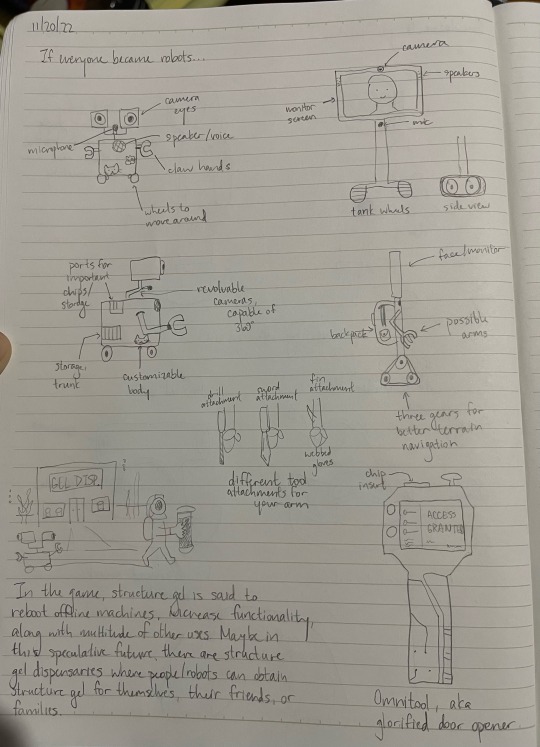 11/20/22
If everyone became robots...
camera
eyes
microphone
speaker/voice
claw hands
wheels to
move around
camera
speakers
monitor
screen
mic
tank wheels
side view
ports for
important
chips/
storage
revolvable
cameras,
capable of
360°
storage,
trunk
customizable
body
face/monitor
backpack
possible
arms
three gears for
better terrain
navigation
drill
attachment
sword
attachment
fin
attachment
webbed
gloves
different tool
attachments for
your arm
GEL DISP.
chip
insert
ACCESS
GRANTED
In the game, structure gel is said to
reboot offline machines, increase functionality,
along with multitude of other uses. Maybe in
this speculative future, there are structure
gel dispensaries where people/robots can obtain
structure gel for themselves, their friends, or
families.
Omnitool, aka
glorified door opener